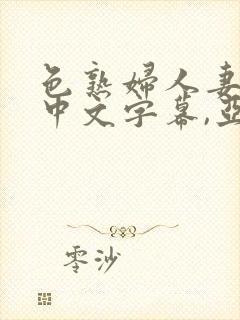 色熟婦人妻
中文字幕,亞
零沙